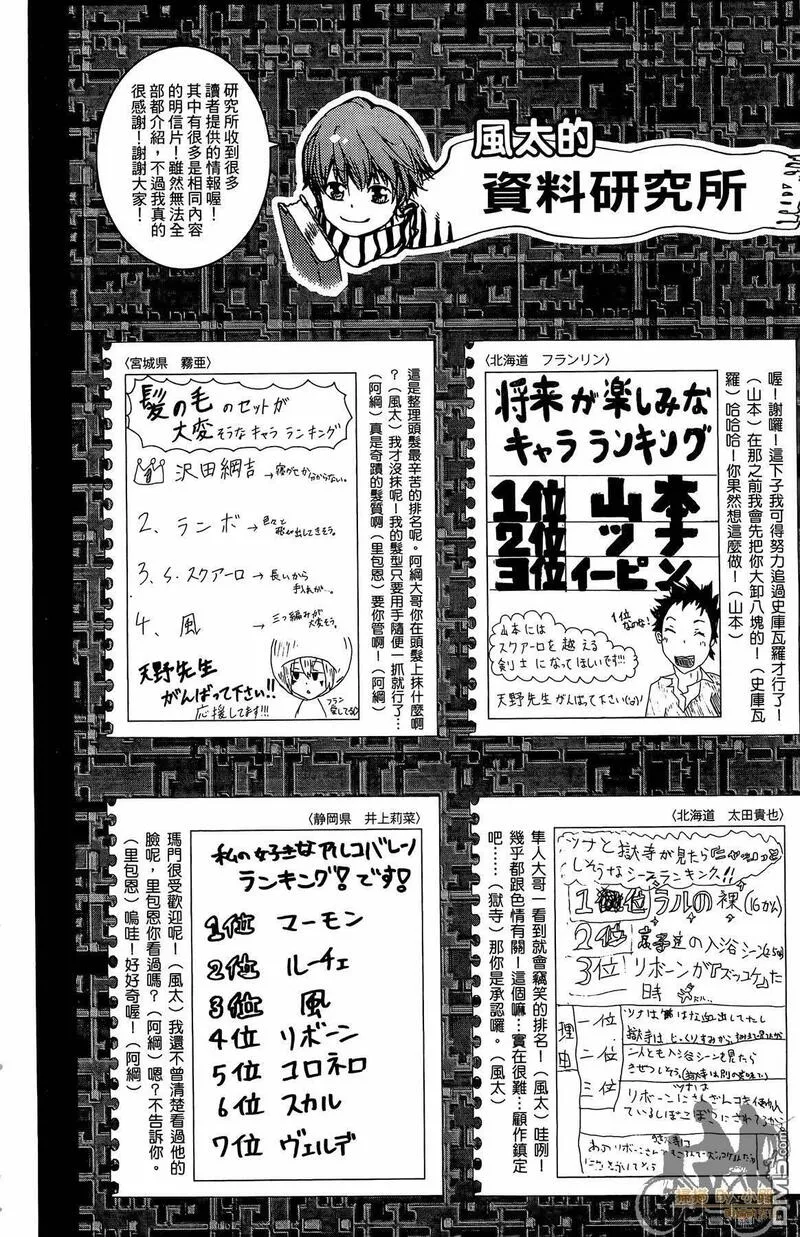 風太的
資料研究所
研究所收到很多
讀者提供的情報喔！
其中有很多是相同內容
的明信片！雖然無法全
部都介紹，不過我真的
很感謝！謝謝大家！
〈北海道　フランリン〉
将来が楽しみな
キャラランキング
1位 山本
2位 ツナ
3位 イーピン
山本には
スクアーロを越える
剣士になってほしいです!!!
1位
なのな!
天野先生がんばって下さい
喔！謝囉！這下子我可得努力追過史庫瓦羅才行了！
（山本）在那之前我會先把你大卸八塊的！（史庫瓦
羅）哈哈哈！你果然想這麼做！（山本）
〈宮城県　霧亜〉
髪の毛のセットが
大変そうなキャラランキング
沢田綱吉→寝ぐせか分からない。
2、ランボ→色々と
3、S・スクアーロ→長いから
手入れが…
4、風→三つ編みが
大変そう。
天野先生
がんばって下さい!!
応援してます!!!
フラン
愛してる
這是整理頭髮最辛苦的排名呢。阿綱大哥你在頭髮上抹什麼啊
？（風太）我才沒抹呢！我的髮型只要用手隨便一抓就行了…
（阿綱）真是奇蹟的髮質啊（里包恩）要你管啊！（阿綱）
〈北海道　太田貴也〉
ツナと獄寺が見たら
しそうなシーンランキング!!
1位ラルの裸(16かん)
2位 京子達の入浴シーン
3位 リボーンが『ズッコケ』た
時
理由
一位
ツナは鼻血出してたし
二位
二人とも入浴シーンを見たら
三位
ツナは
リボーンにさんざんコキ使われ
ているしぼこぼこにされてるから
隼人大哥一看到就會竊笑的排名！（風太）哇咧！
幾乎都跟色情有關！這個嘛…實在很難…顧作鎮定
吧……（獄寺）那你是承認囉。（風太）
〈静岡県　井上莉菜〉
私の好きなアルコバレーノ
ランキング!です!
1位 マーモン
2位 ルーチェ
3位 風
4位 リボーン
5位 コロネロ
6位 スカル
7位 ヴェルデ
瑪門很受歡迎呢！（風太）我還不曾清楚看過他的
臉呢，里包恩你看過嗎？（阿綱）嗯？不告訴你。
（里包恩）嗚哇！好好奇喔！（阿綱）